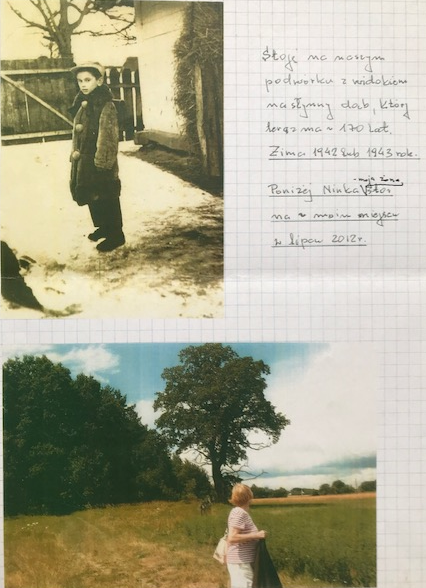 Stoję na naszym
podwórku z widokiem
na słynny dąb, który
teraz ma ~ 170 lat.
Zima 1942 lub 1943 rok.
- moja żona,
Poniżej Ninka
na moim miejscu
w lipcu 2012r.